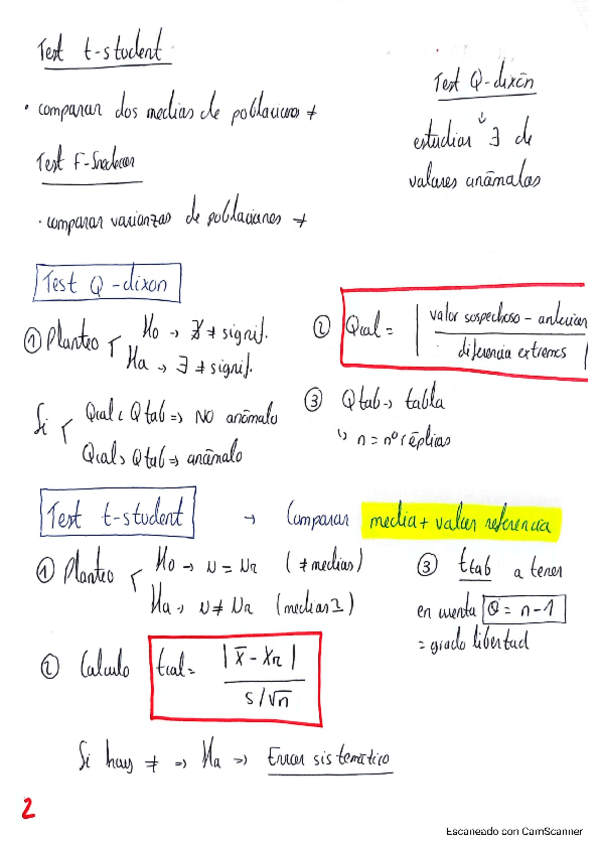 Test t-student
• comparar dos medias de poblaciones ≠
Test F-Snedecor
• comparar varianzas de poblaciones ≠
Test Q-dixon
↓
estudiar ∃ de
valores anómalos
Test Q-dixon
① Planteo
Ho → ∄ ≠ signif.
Ha → ∃ ≠ signif.
Si
Qcal < Qtab => NO anómalo
Qcal > Qtab => anómalo
② Qcal = | valor sospechoso - anterior
diferencia extremos |
③ Qtab → tabla
↳ n = nº réplias
Test t-student → Comparar media + valor referencia
① Planteo
Ho → N = Nr (≠ medias)
Ha → N ≠ Nr (medias 2)
② Calculo tcal = | x̄ - Xr |
s/√n
③ ttab a tener
en cuenta θ = n-1
= grado libertad
Si hay ≠ => Ha => Error sistemático
2
Escaneado con CamScanner